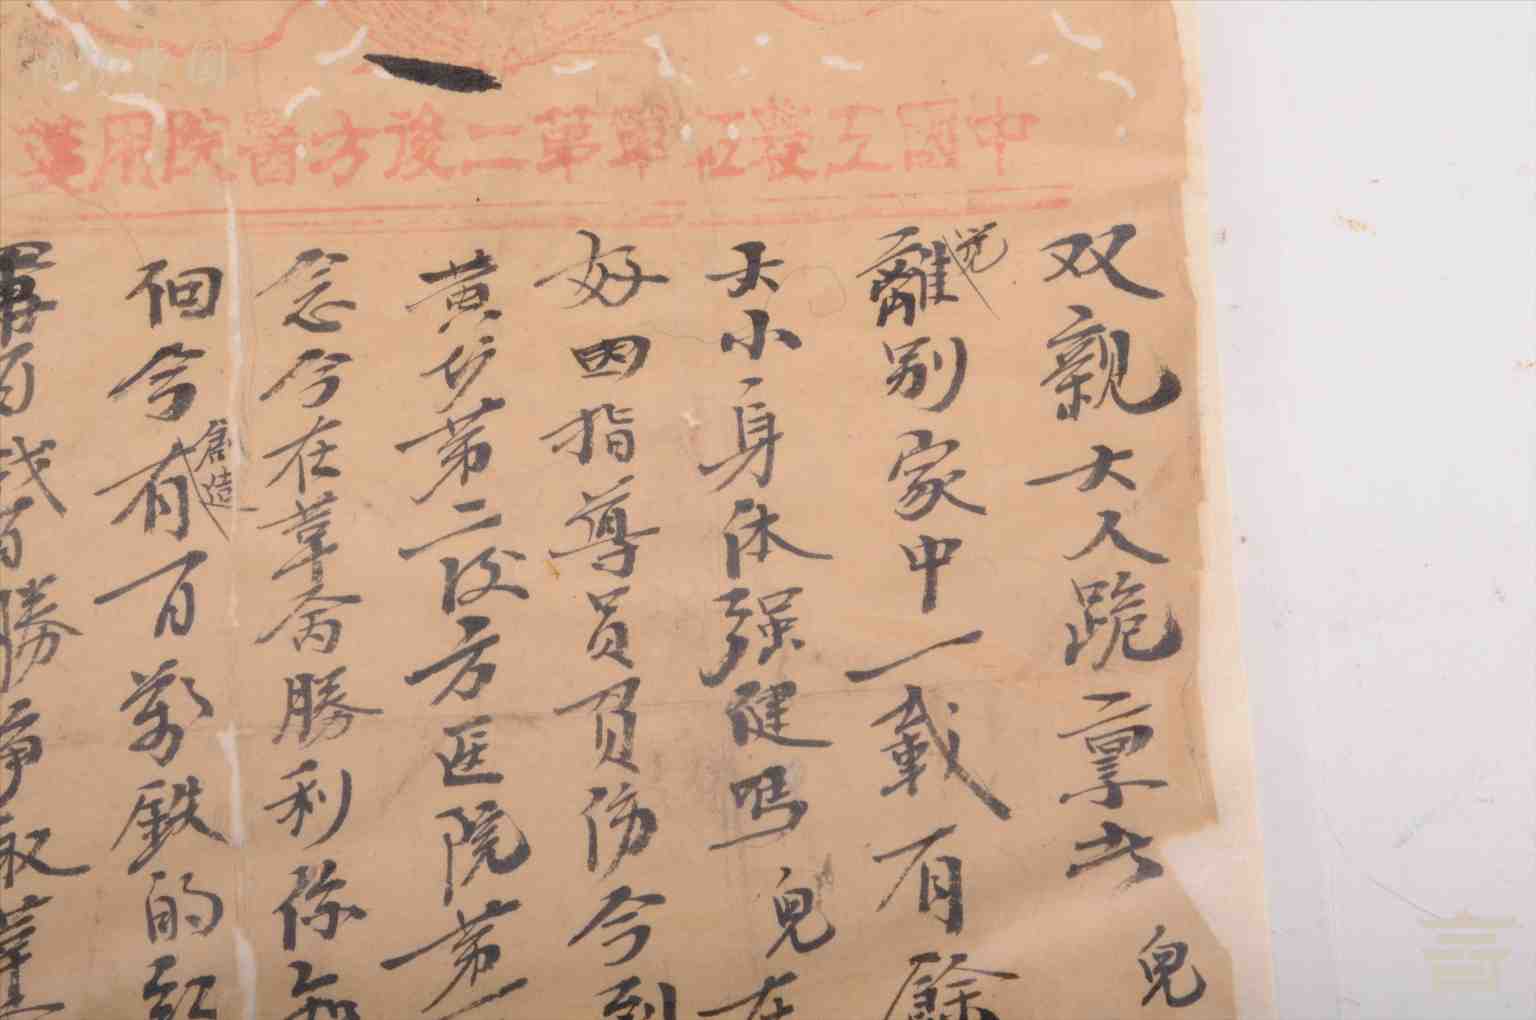 中國工農红軍第二後方醫院用箋
双親大人跪禀者兒
離兒别家中一載有餘
大小身体强健嗎兒在
好因指導員負伤今到
黄坊第二后方医院第一
念今在革命勝利係
佪今有創造百萬鉄的红
百战百勝爭取革